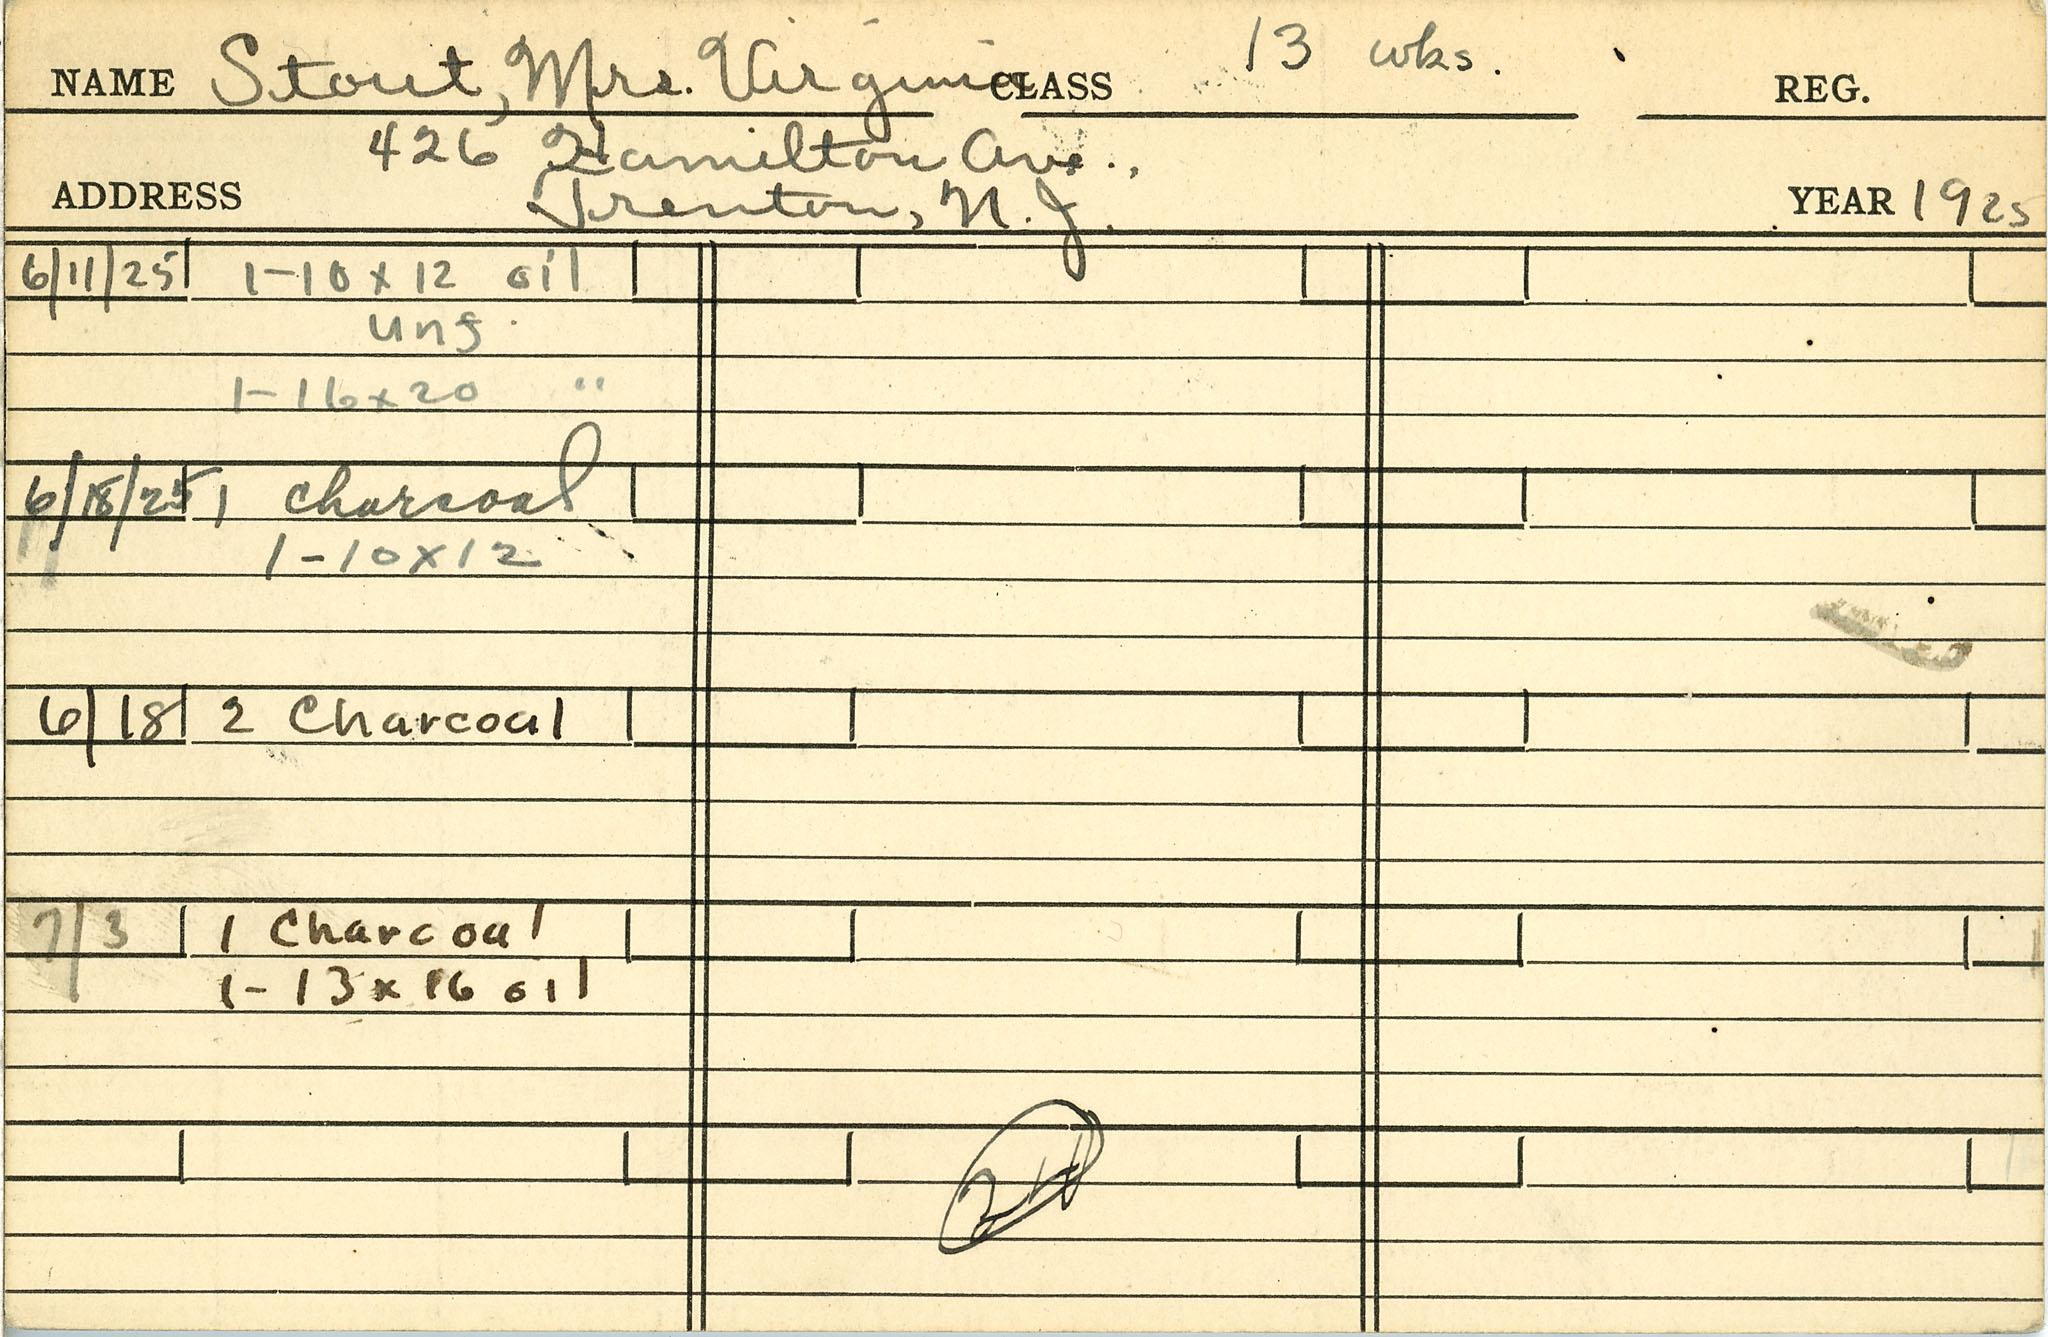 NAME Stout, Mrs. Virginia CLASS 13 wks. REG.
426 Hamilton Ave.,
ADDRESS Trenton, N.J. YEAR 1925
6/11/25 1-10 x 12 oil
unf.
1-16x20 "
6/18/25 1 charcoal
1-10x12
6/18 2 Charcoal
7/3 1 Charcoal
1-13x16 oil